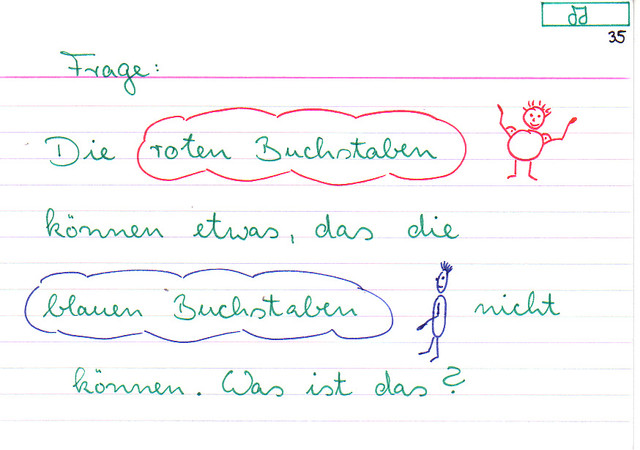 35
Frage:
Die roten Buchstaben
können etwas, das die
blauen Buchstaben nicht
können. Was ist das?